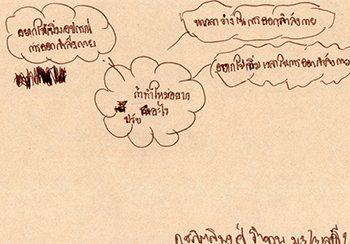 อยากให้เพิ่มอุปกรณ์
การออกกำลังกาย
หาเวลาว่างในการออกกำลังกาย
อยากให้เพิ่มเวลาในการออกกำลังกาย
ถ้าทำใหม่อยาก
ปรับ อะไร